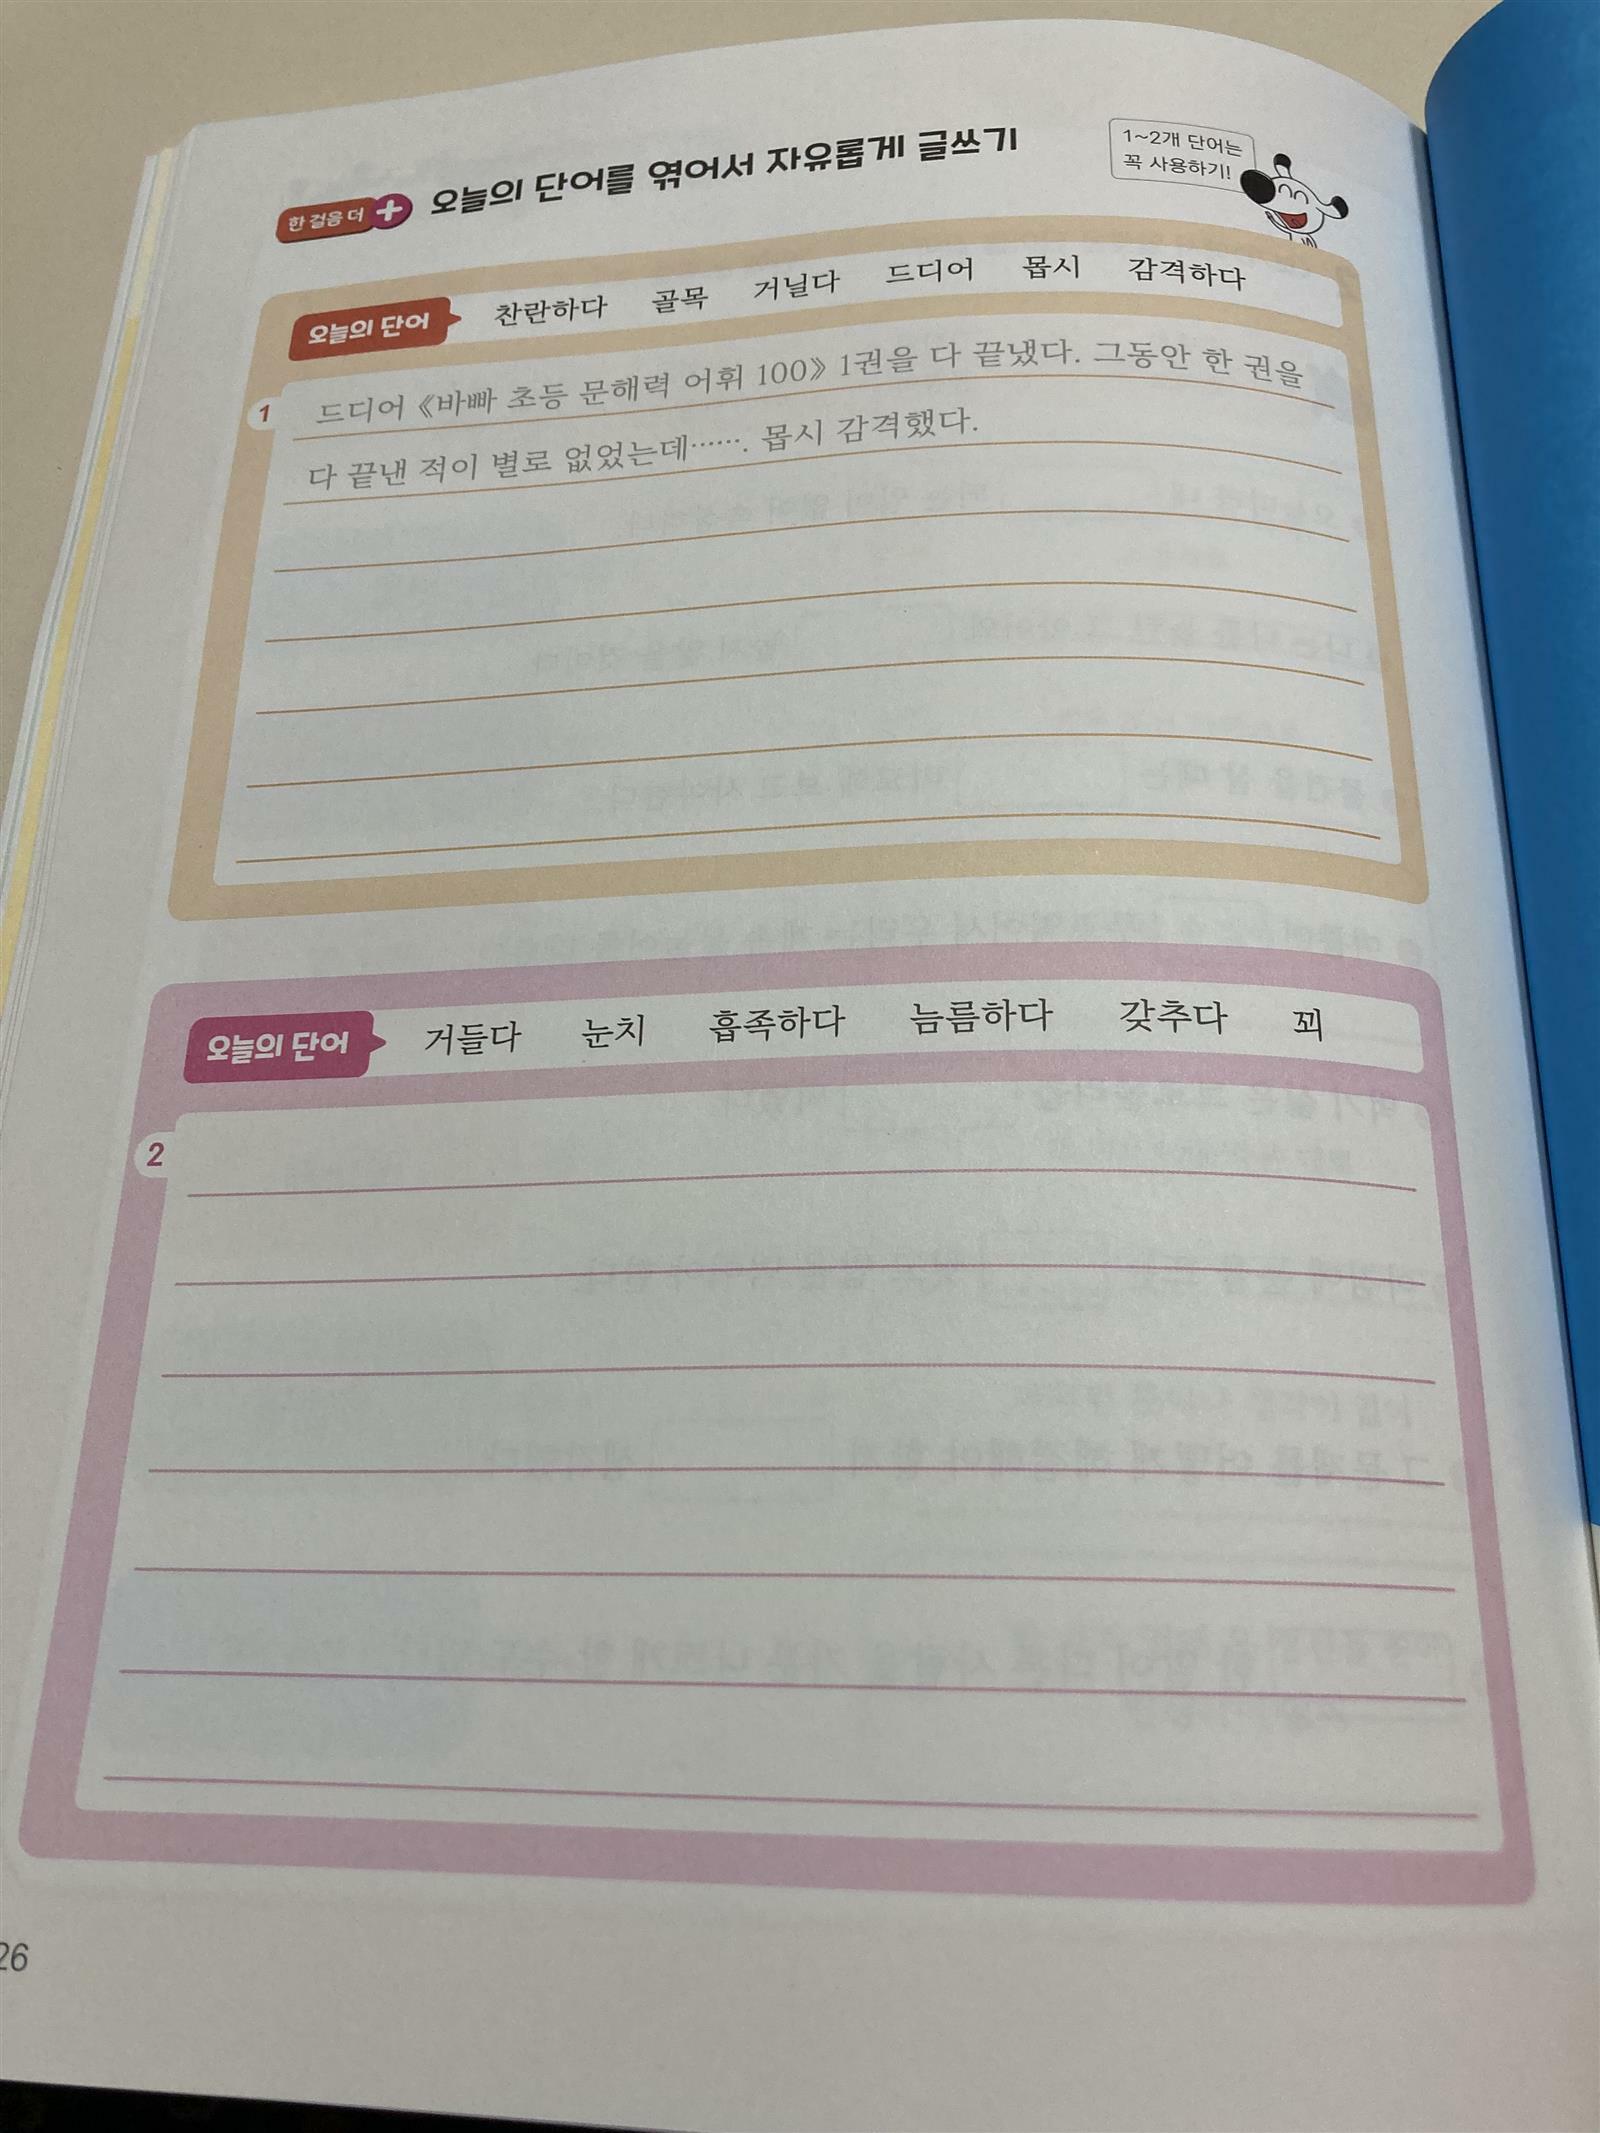 1~2개 단어는
꼭 사용하기!
한 걸음 더 + 오늘의 단어를 엮어서 자유롭게 글쓰기
오늘의 단어 찬란하다 골목 거닐다 드디어 몹시 감격하다
1 드디어 《바빠 초등 문해력 어휘 100》 1권을 다 끝냈다. 그동안 한 권을
다 끝낸 적이 별로 없었는데……. 몹시 감격했다.
오늘의 단어 거들다 눈치 흡족하다 늠름하다 갖추다 꾀
2
26